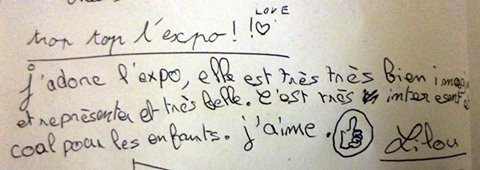 LOVE
trop top l'expo ! !
j'adore l'expo, elle est très très bien
et représenter et très belle. c'est très interesent
coal pour les enfants. j'aime.
Lilou